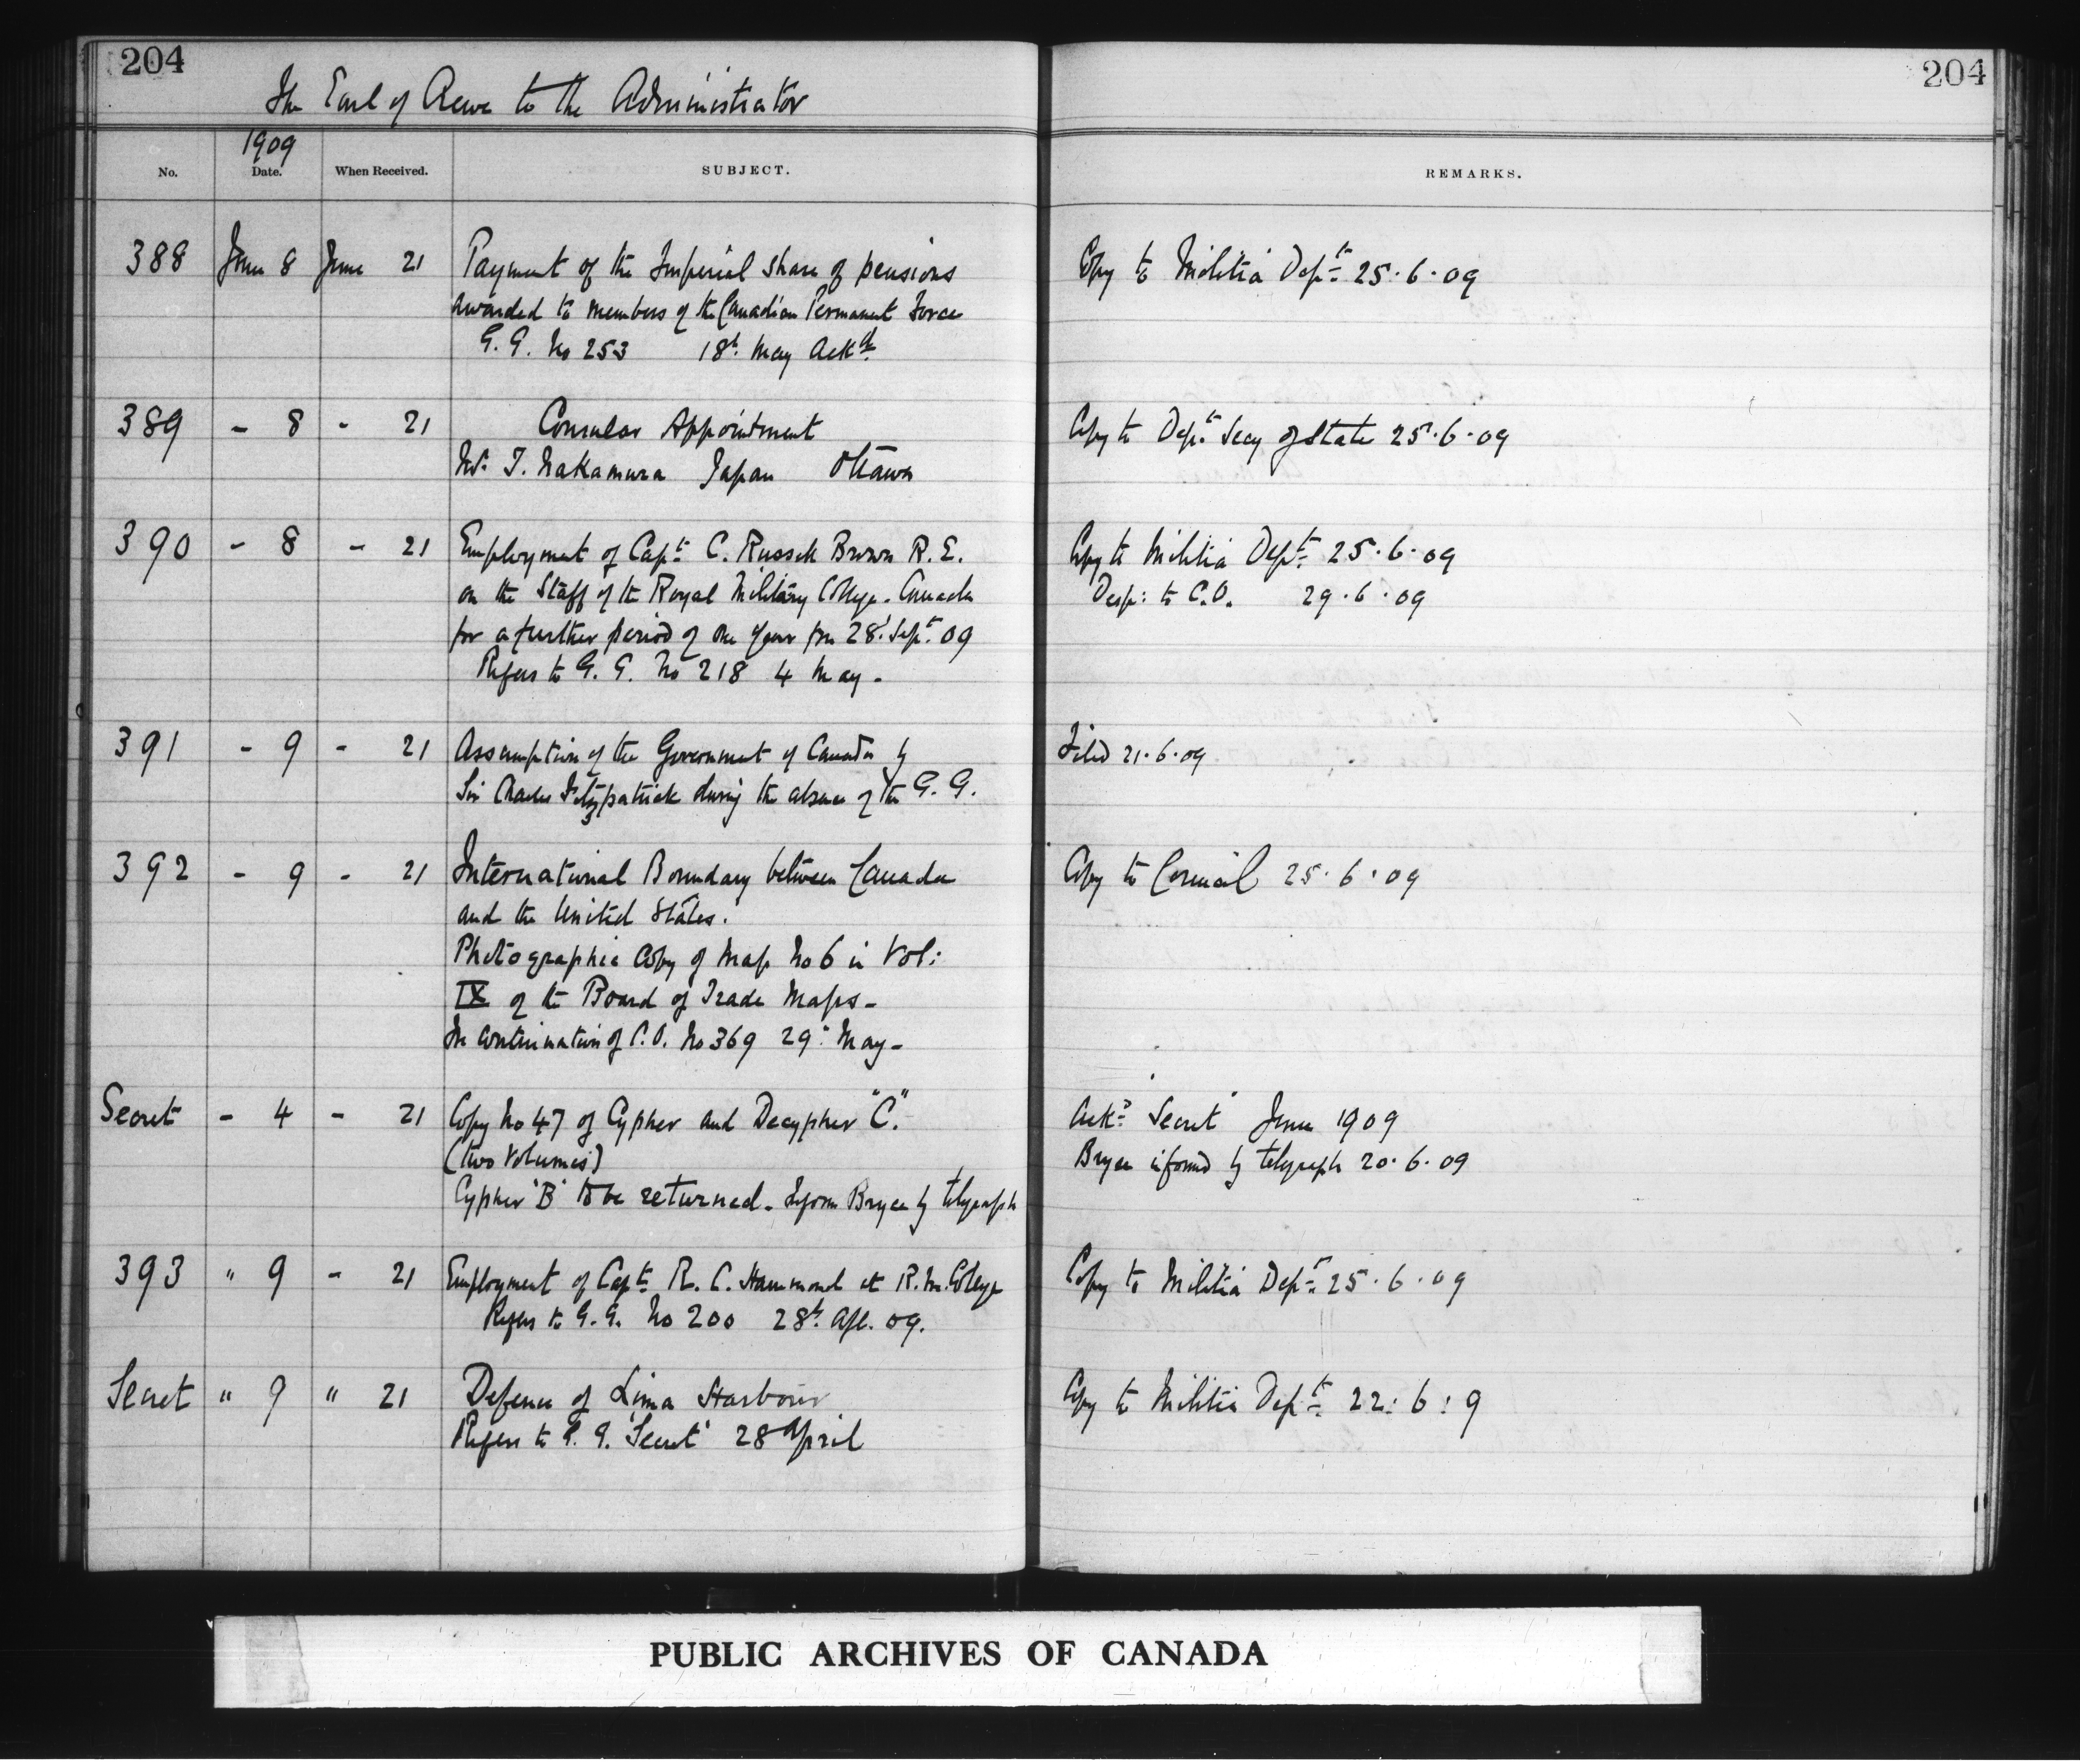 204
204
The Earl of Crewe to the Administrator
1909
No. Date. When Received. SUBJECT. REMARKS.
388 June 8 June 21 Payment of the Imperial share of pensions Copy to Militia Dept 25.6.09
awarded to members of the Canadian Permanent Force
G.G. No 253 18th May Ackd
389 - 8 - 21 Consular Appointment Copy to Dept Secy of State 25.6.09
Mr T. Nakamura Japan Ottawa
390 - 8 - 21 Employment of Capt C. Russell Brown R.E. Copy to Militia Dept 25.6.09
on the Staff of the Royal Military College. Canada Desp: to C.O. 29.6.09
for a further period of one year from 28th Sept. 09
Refers to G.G. No 218 4 May -
391 - 9 - 21 Assumption of the Government of Canada by Filed 21.6.09
Sir Charles Fitzpatrick during the absence of the G.G.
392 - 9 - 21 International Boundary between Canada Copy to Council 25.6.09
and the United States.
Photographic Copy of Map No 6 in Vol:
IX of the Board of Trade Maps -
In continuation of C.O. No 369 29th May -
Secret - 4 - 21 Copy No 47 of Cypher and Decypher "C". Ackd "Secret" June 1909
(two volumes) Bryce informed by telegraph 20.6.09
Cypher 'B' to be returned - Inform Bryce by telegraph
393 " 9 - 21 Employment of Capt R.C. Hammond at R.M. College Copy to Militia Dept 25.6.09
Refers to G.G. No 200 28th Apl. 09.
Secret " 9 " 21 Defence of Lima Harbour Copy to Militia Dept 22:6:9
Refers to G.G. 'Secret' 28 April
PUBLIC ARCHIVES OF CANADA